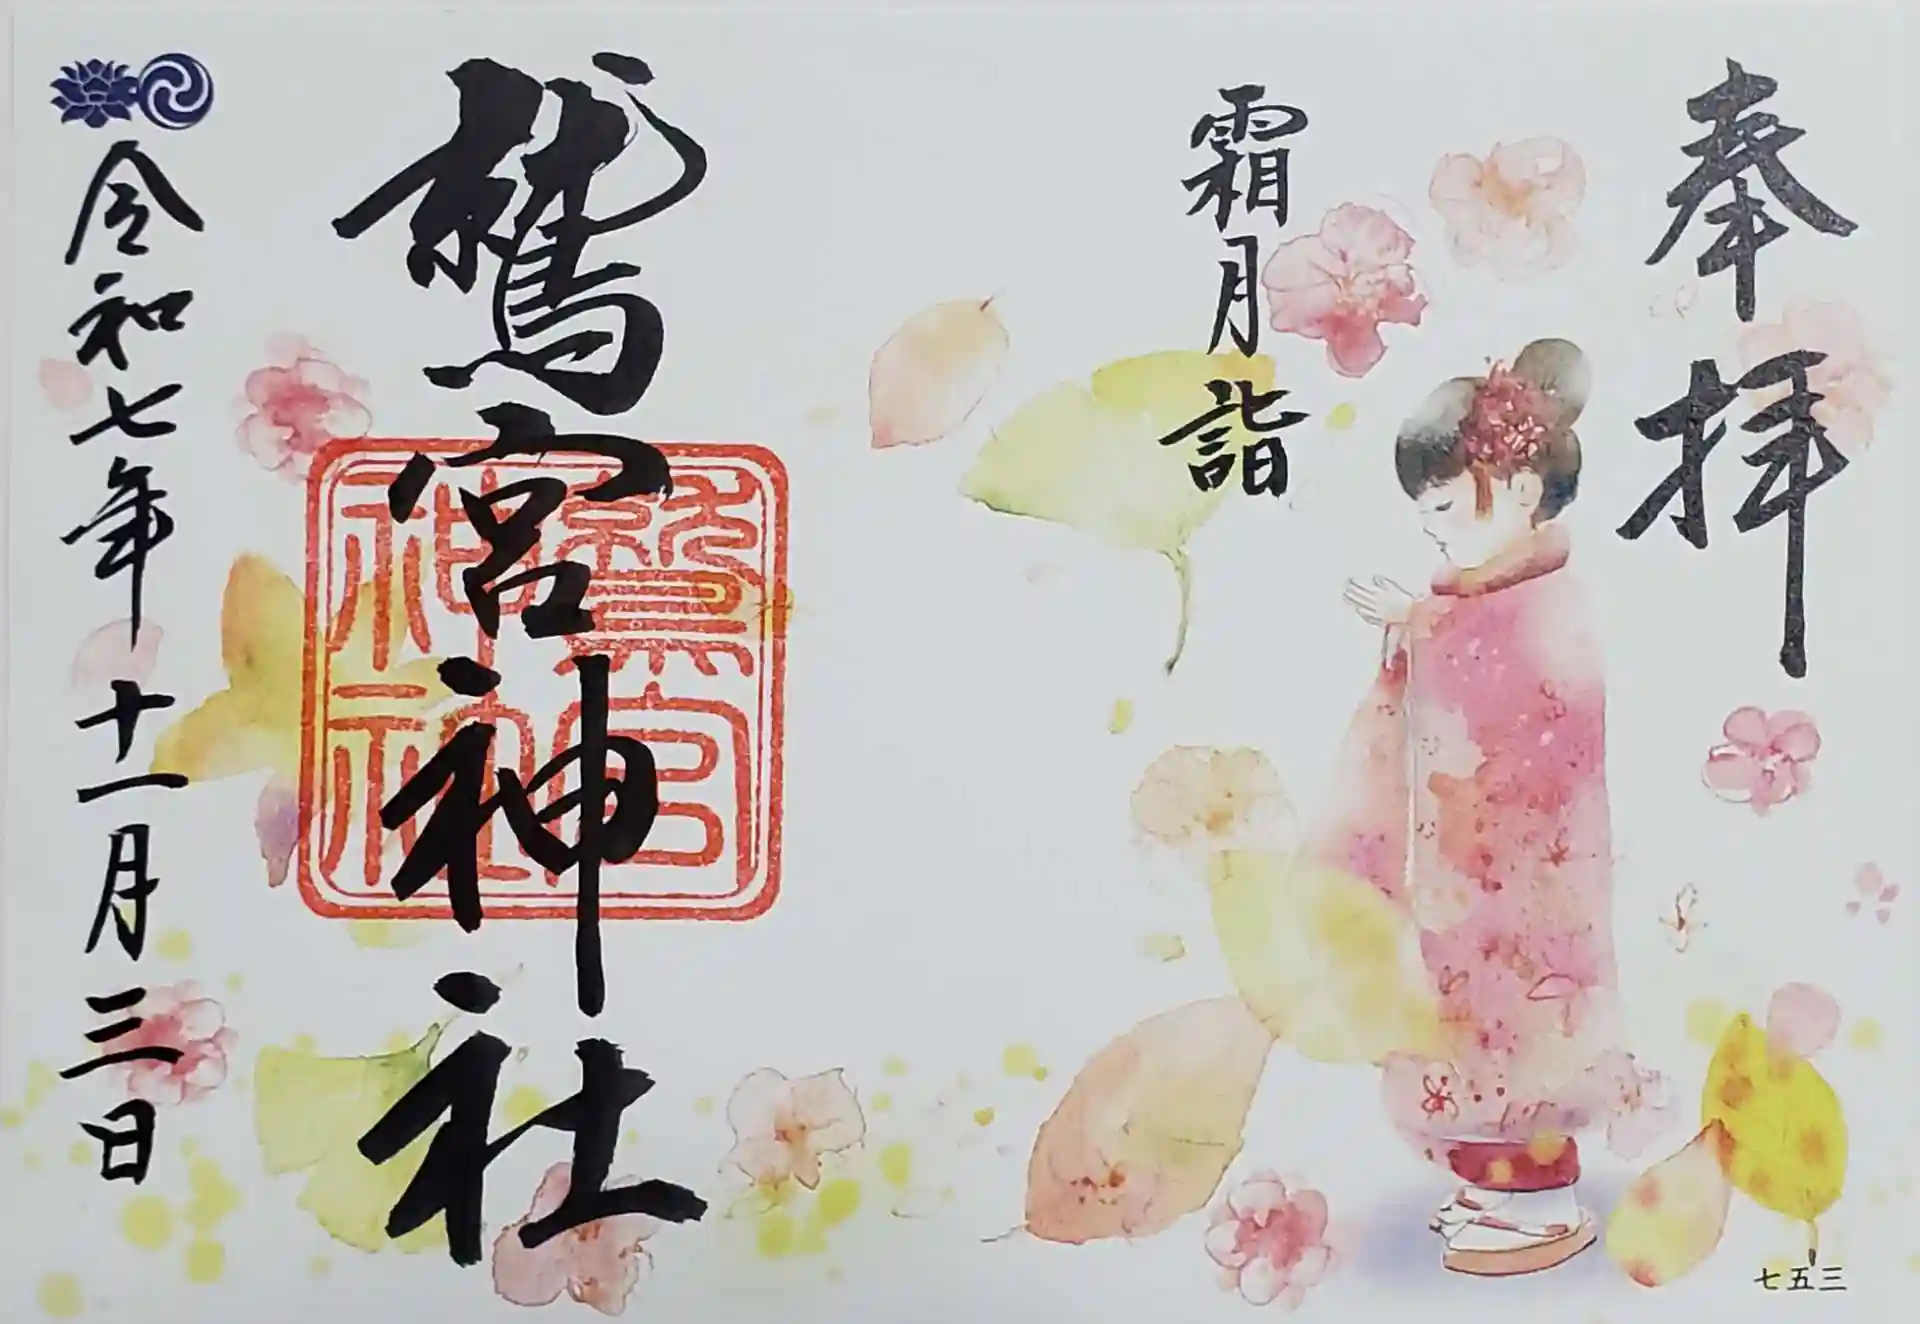 奉拝
霜月詣
七五三
鷲宮神社
鷲宮
神社
令和七年十一月三日